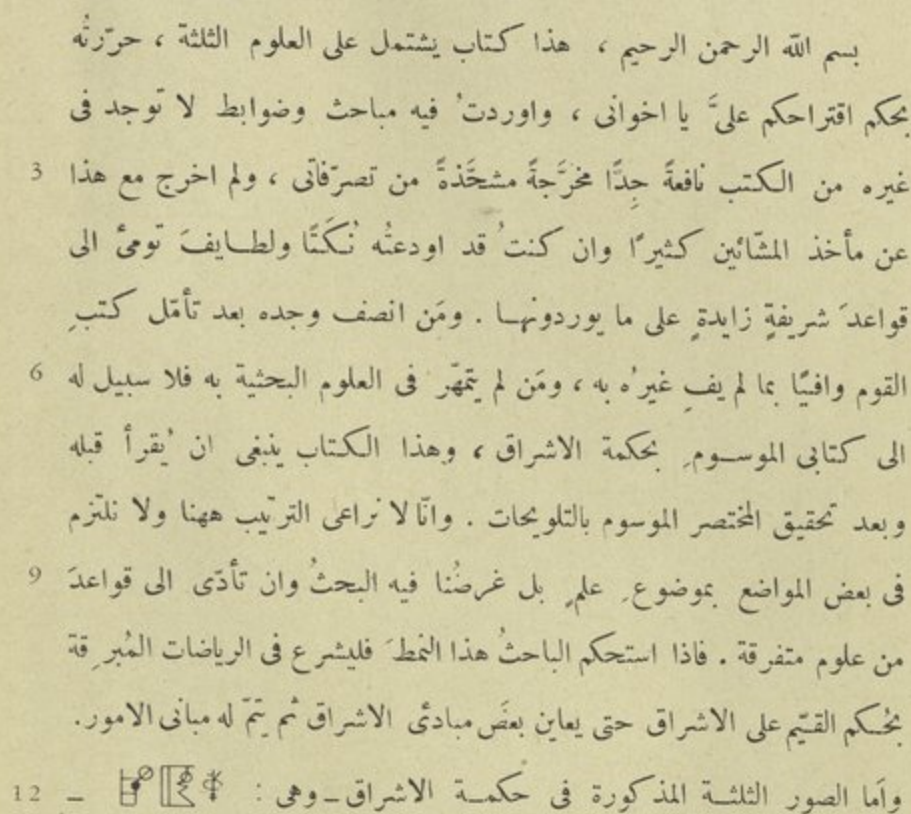 بسم الله الرحمن الرحيم ، هذا كتاب يشتمل على العلوم الثلثة ، حرّرتُه
بحكم اقتراحكم علىَّ يا اخوانى ، واوردتُ فيه مباحث وضوابط لا توجد فى
غيره من الكتب نافعةً جِدًّا مخرَّجةً مشحَّذةً من تصرّفاتى ، ولم اخرج مع هذا 3
عن مأخذ المشّائين كثيرًا وان كنتُ قد اودعتُه نُكَتًا ولطايفَ تومئ الى
قواعدَ شريفةٍ زايدةٍ على ما يوردونها . ومَن انصف وجده بعد تأمّل كتبِ
القوم وافيًا بما لم يفِ غيرُه به ، ومَن لم يتمهّر فى العلوم البحثية به فلا سبيل له 6
الى كتابى الموسومِ بحكمة الاشراق ، وهذا الكتاب ينبغى ان يُقرأ قبله
وبعد تحقيق المختصر الموسوم بالتلويحات . وانّا لا نراعى الترتيب ههنا ولا نلتزم
فى بعض المواضع بموضوعِ علمٍ بل غرضُنا فيه البحثُ وان تأدّى الى قواعدَ 9
من علوم متفرقة . فاذا استحكم الباحثُ هذا النمطَ فليشرع فى الرياضات المُبرِقة
بحُكم القيّم على الاشراق حتى يعاين بعضَ مبادئ الاشراق ثم يتمّ له مبانى الامور.
وأما الصور الثلثة المذكورة فى حكمة الاشراق ـ وهى : ـ 12